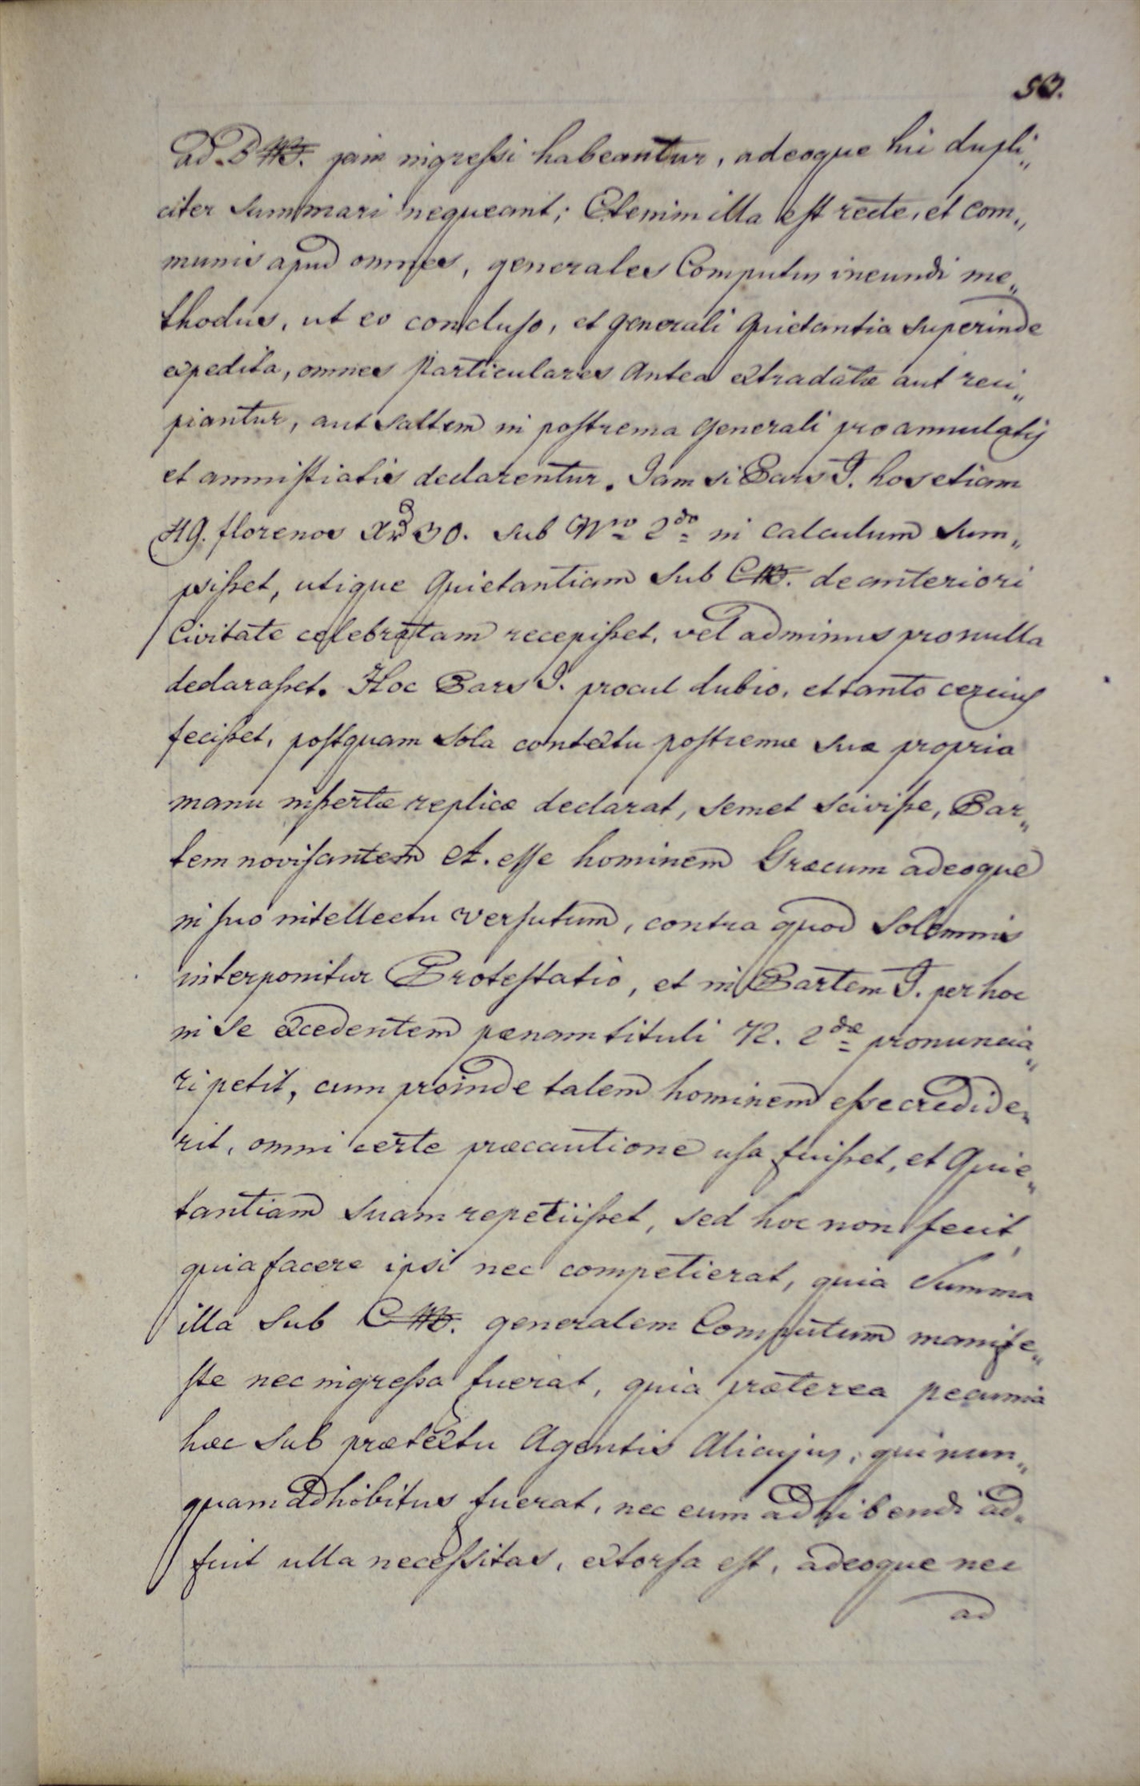 50.
ad B #. jam ingressi habeantur, adeoque hic dupli„
citer summari nequeant; Etenim illa est recte, et com„
munis apud omnes, generales Computus ineundi me„
thodus, ut eo concluso, et generali Quietantia superinde
expedita, omnes particulares antea extradatæ aut reci„
piantur, aut saltem in postrema generali pro annulatis
et amnistiatis declarentur. Jam si Pars I. hos etiam
49. florenos Xrd 30. sub Nro 2do in calculum sum„
psisset, utique Quietantiam sub C #. de anteriori
Civitate celebratam recepisset, vel ad minus pro nulla
declarasset. Hoc Pars I. procul dubio, et tanto cercius
fecisset, postquam sola contextu postremæ suæ propria
manu insertæ replicæ declarat, semet scivisse, Par„
tem novisantem A. esse hominem Græcum adeoque
in suo intellectu versutum, contra quod solemnis
interponitur Protestatio, et in Partem I. per hoc
in se excedentem pænam tituli 72. 2dæ pronuncia„
ri petit, cum proinde talem hominem esse credide„
rit, omni certe præcautione usa fuisset, et Quie„
tantiam suam repetiisset, sed hoc non fecit,
quia facere ipsi nec competierat, quia Summa
illa sub C #. generalem Computum manife„
ste nec ingressa fuerat, quia præterea pecunia
hæc sub prætextu Agentis Alicujus, qui nun„
quam adhibitus fuerat, nec eum adhibendi ad„
fuit ulla necessitas, extorsa est, adeoque nec
ad